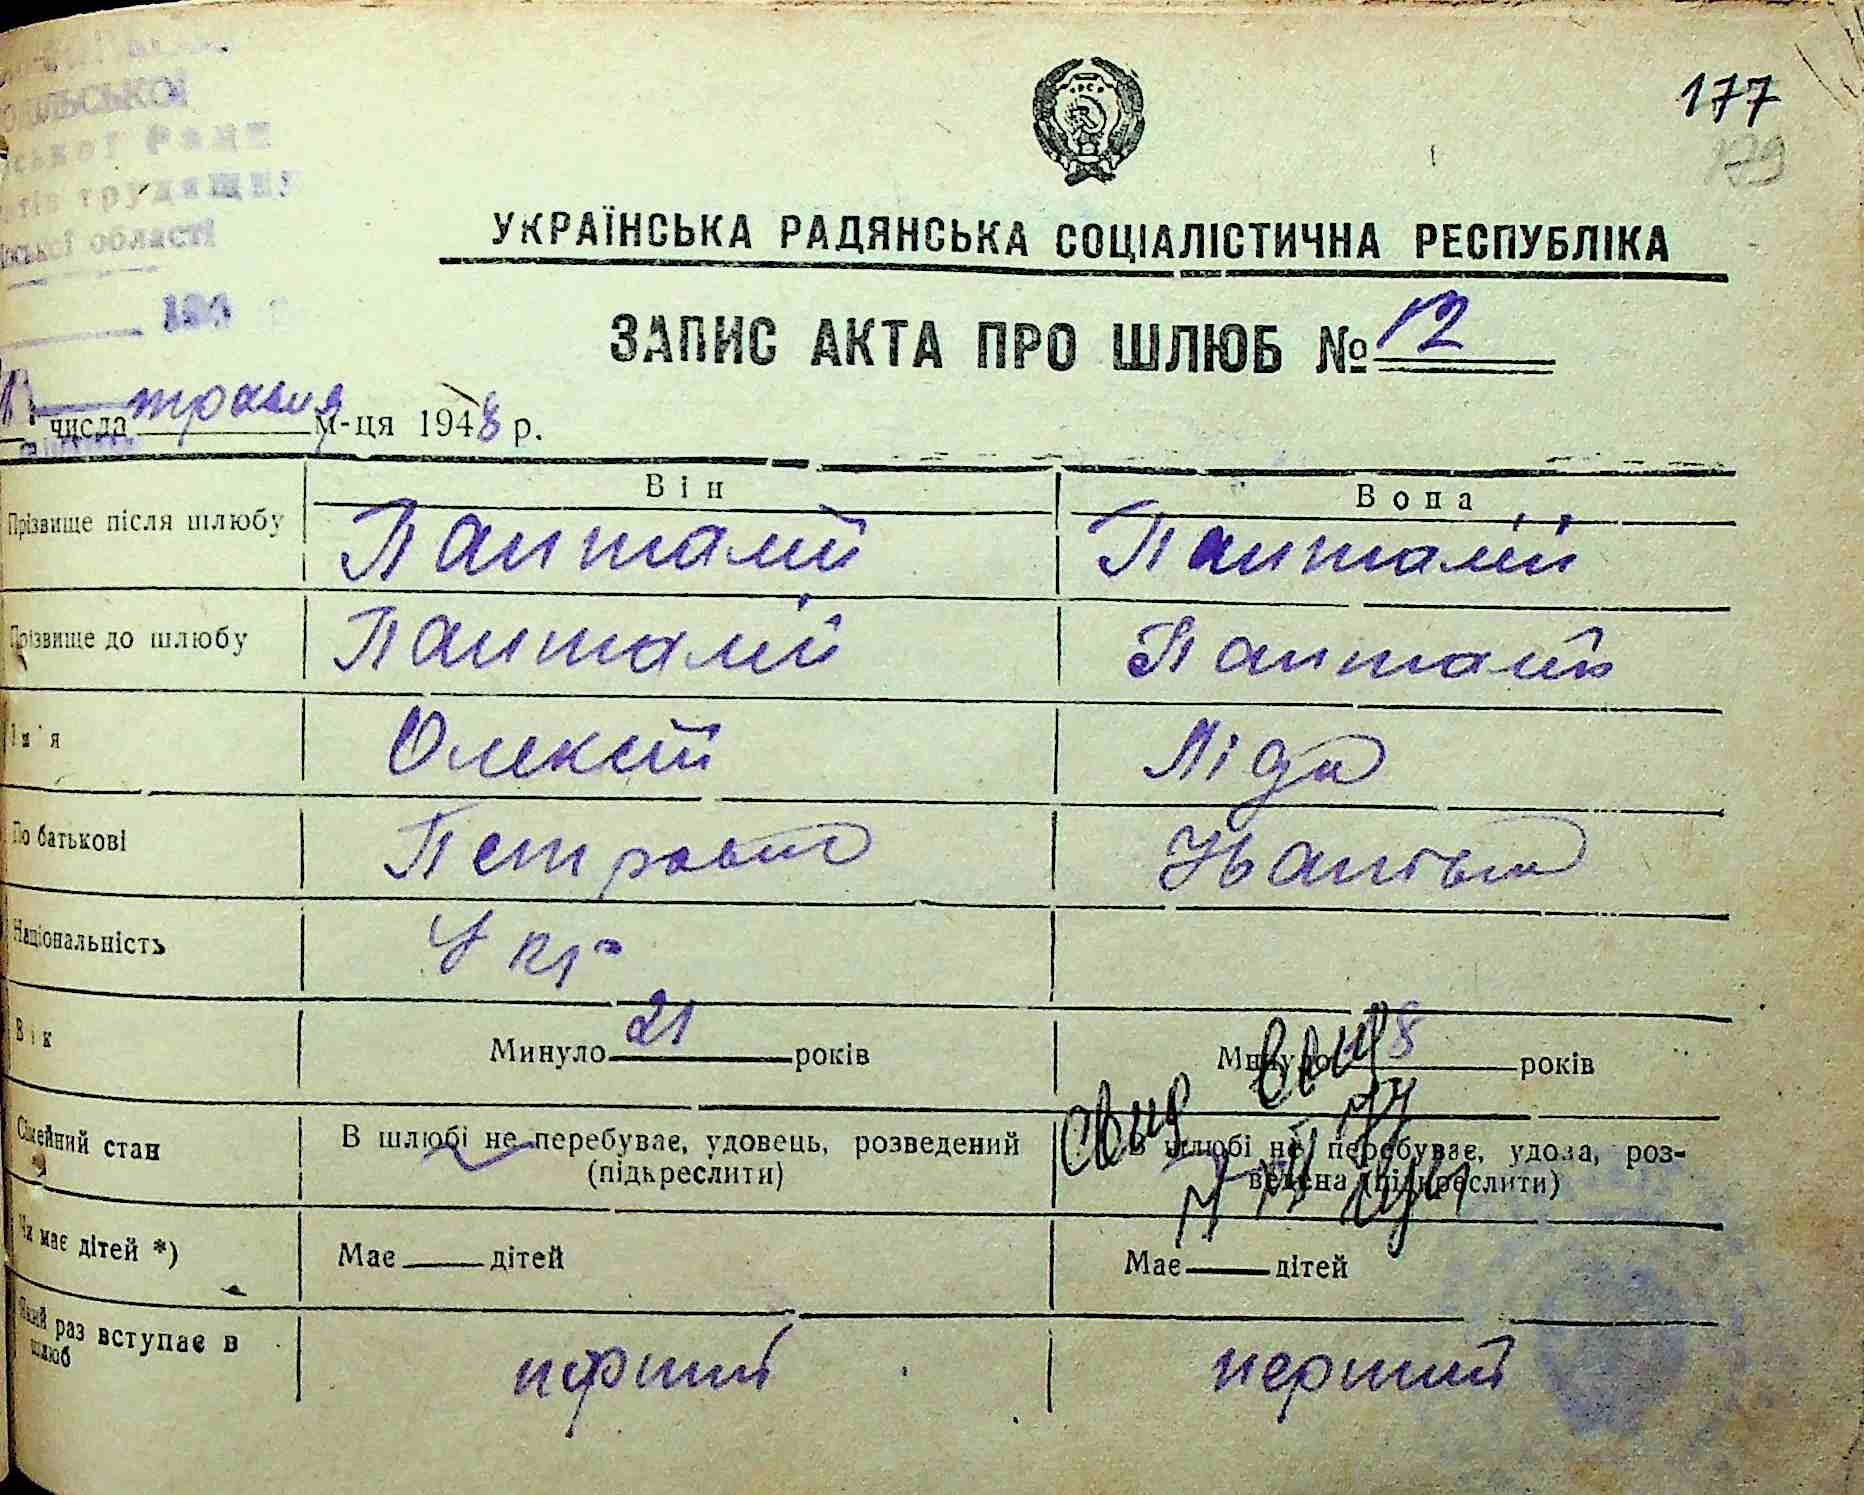 177
179
УКРАЇНСЬКА РАДЯНСЬКА СОЦІАЛІСТИЧНА РЕСПУБЛІКА
ЗАПИС АКТА ПРО ШЛЮБ № 12
числа травня м-ця 1948 р.
Він Вона
Прізвище після шлюбу Панталій Панталій
Прізвище до шлюбу Панталій Панталій
Ім'я Олексій Ліда
По батькові Петрович Іванівна
Національність Укр
Вік Минуло 21 років Минуло 18 років
Сімейний стан В шлюбі не перебуває, удовець, розведений (підкреслити) В шлюбі не перебуває, удова, розведена (підкреслити)
Чи має дітей *) Має — дітей Має — дітей
Який раз вступає в шлюб перший перший
області